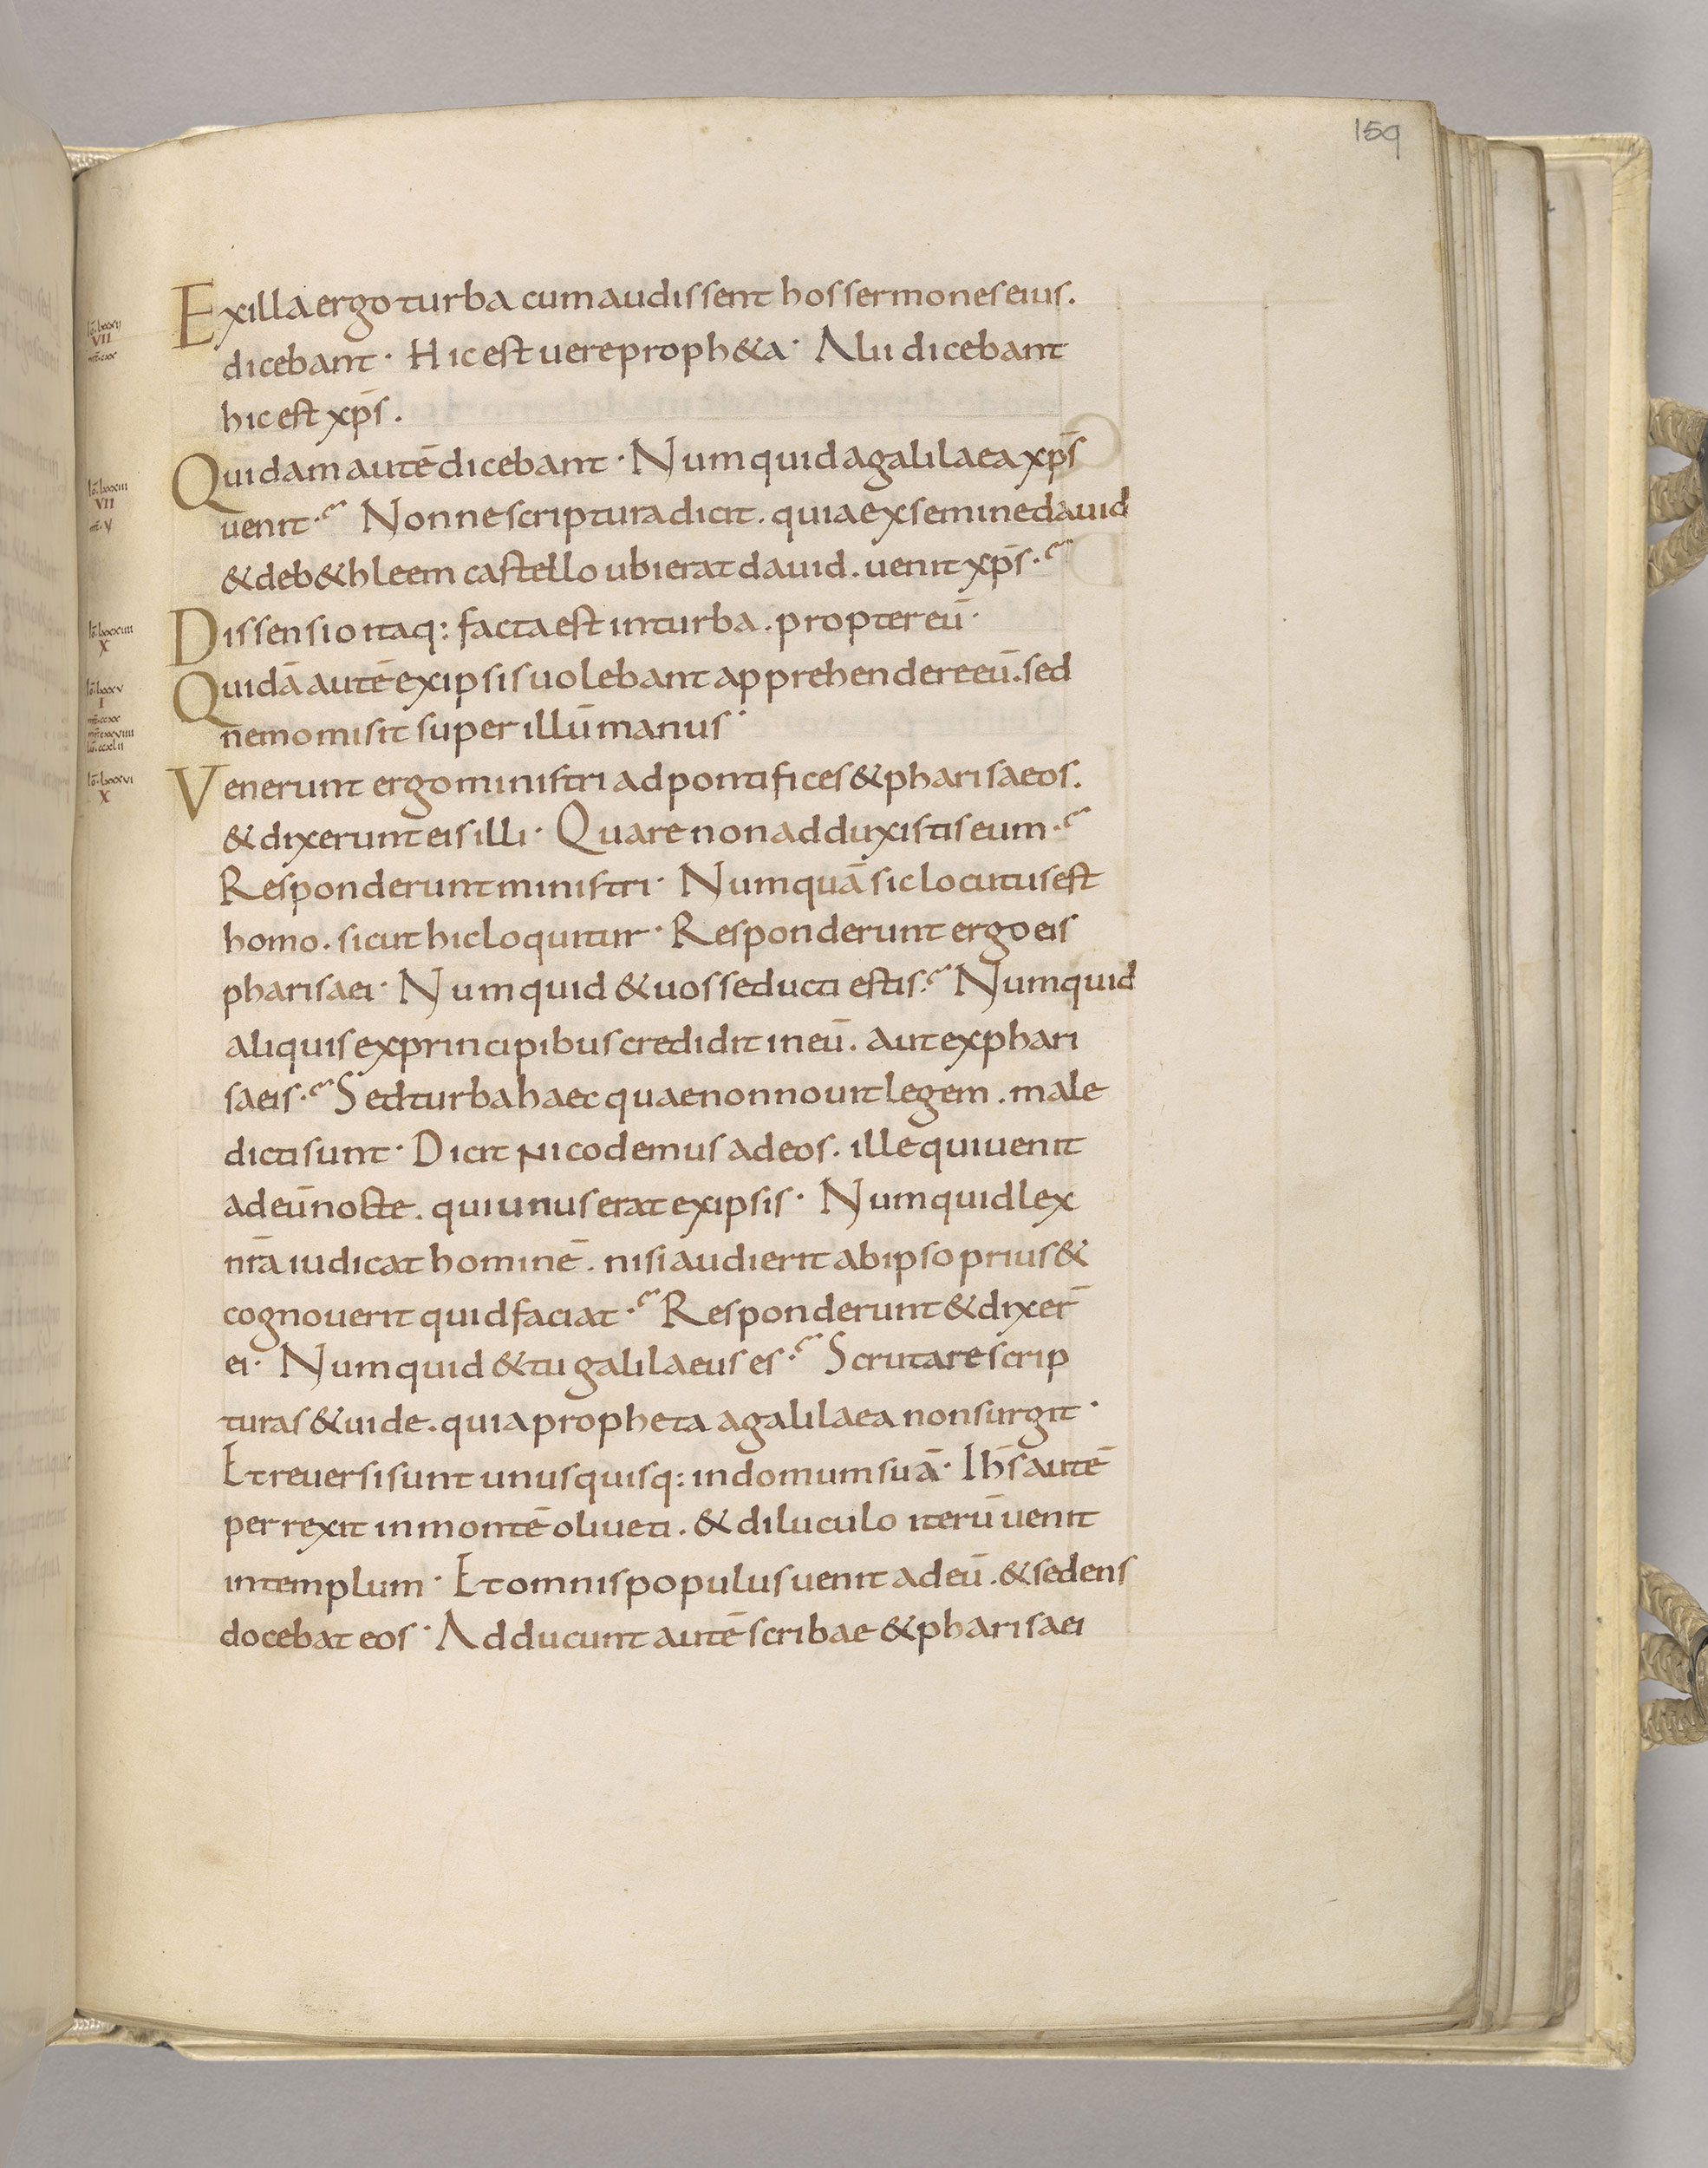 159
Exilla ergo turba cum audissent hos sermones eius.
dicebant · Hic est uere proph&a · Alii dicebant
hic est xp̄s .
Quidam autē dicebant · Numquid agalilaea xp̄s
uenit ·? Nonne scriptura dicit . quia exsemine dauid
& deb&hleem castello ubi erat dauid . uenit xp̄s ·?
Dissensio itaq: facta est inturba . propter eū ·
Quidā autē exipsis uolebant apprehendere eū . sed
nemo misit super illū manus ·
Venerunt ergo ministri adpontifices & pharisaeos .
& dixerunt eis illi · Quare non adduxistis eum ·?
Responderunt ministri · Numquā sic locutus est
homo . sicut hic loquitur · Responderunt ergo eis
pharisaei · Numquid & uos seducti estis ·? Numquid
aliquis exprincipibus credidit in eū . aut exphari
saeis ·? Sed turba haec quae non nouit legem . male
dicti sunt · Dicit Nicodemus ad eos . ille qui uenit
ad eū nocte . qui unus erat exipsis · Numquid lex
nr̄a iudicat hominē . nisi audierit abipso prius &
cognouerit quid faciat ·? Responderunt & dixer̄
ei · Numquid & tu galilaeus es ·? Scrutare scrip
turas & uide . quia propheta agalilaea non surgit ·
Et reuersi sunt unusquisq: indomum suā · Ihs̄ autē
perrexit inmontē oliueti . & diluculo iterū uenit
intemplum · Et omnis populus uenit ad eū . & sedens
docebat eos · Adducunt autē scribae & pharisaei
VII
VII
X
I
X